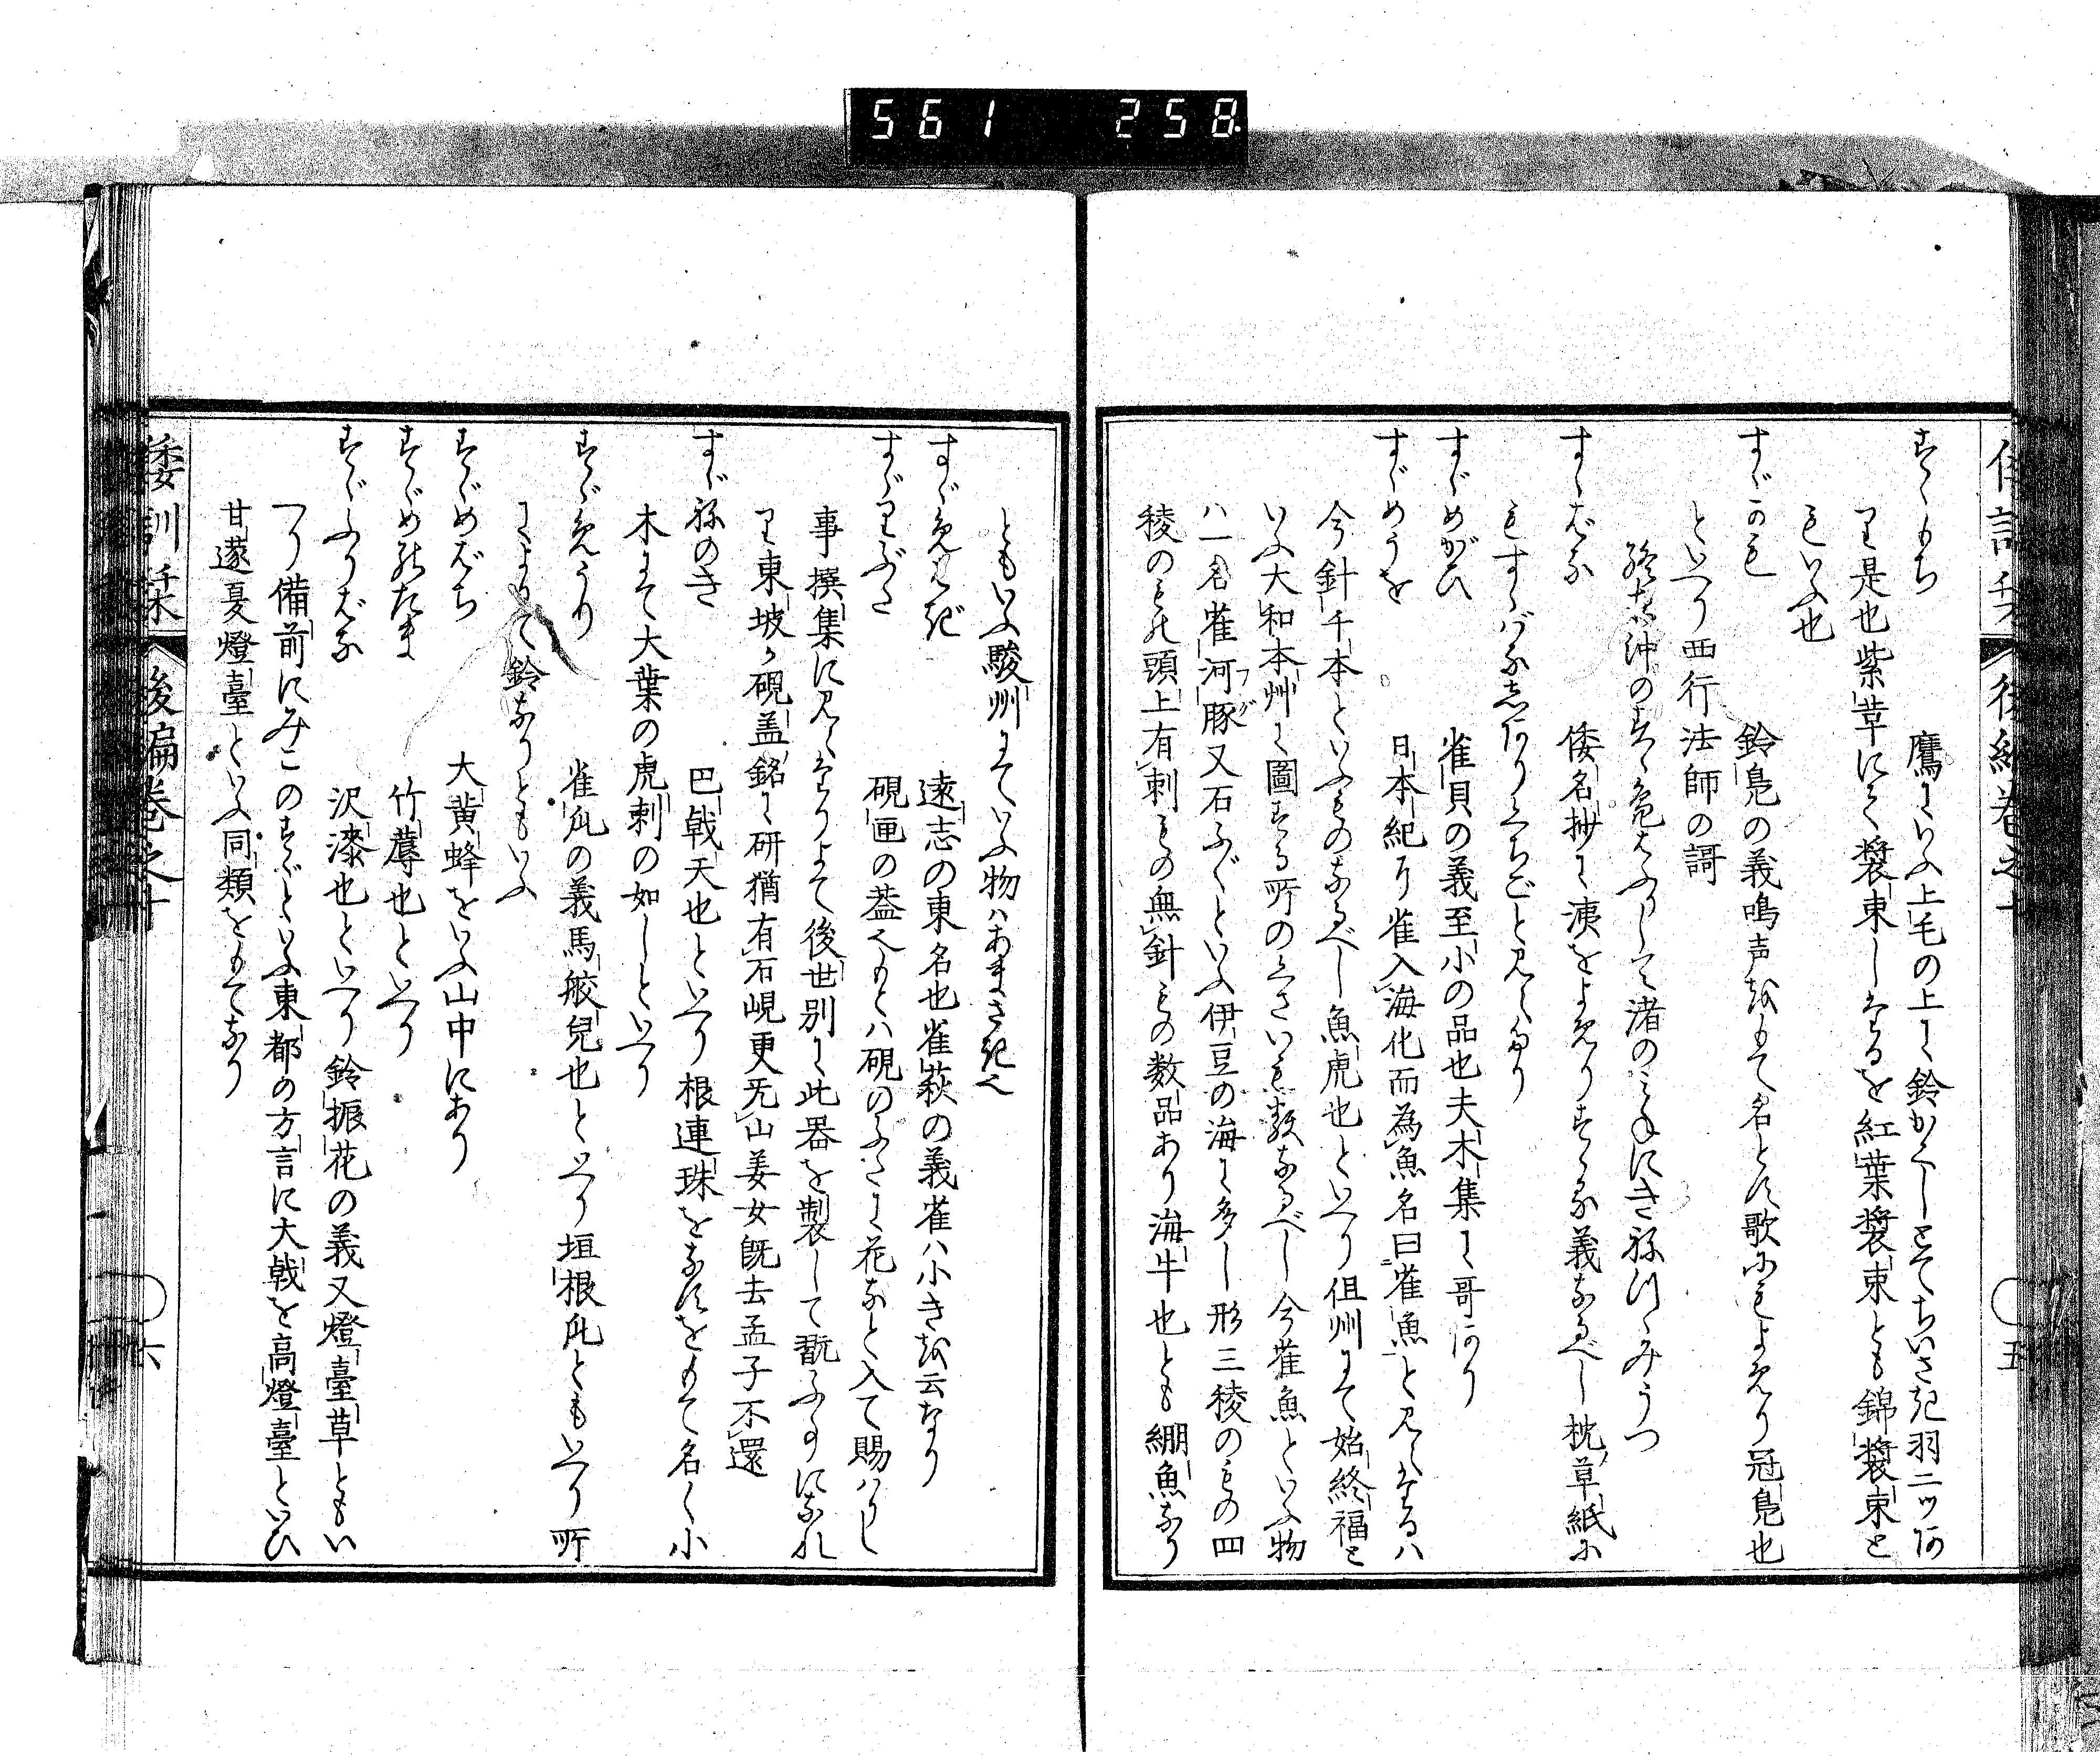 561 258
倭訓栞 後編巻之十 五
すゞもち 鷹にいふ上毛の上に鈴かくしとてちいさき羽二ツあ
り是也紫草にて裝束しけるを紅葉裝束とも錦裝束と
もいふ也
すゞかも 鈴鳬の義鳴声をもて名とす歌にもよめり冠鳬也
といへり西行法師の謌
沖のすゞ鴨 渚の にきねたゝみうつ
すゝばな 倭名抄に洟をよめりすゝる義なるべし枕草紙に
もすゝばなしありくちごと見へたり
すゞめがひ 雀貝の義至小の品也夫木集に哥あり
すゞめうを 日本紀に雀入海化而為魚名曰雀魚と見へたるハ
今針千本といふものなるべし魚虎也といへり但州にて始終福と
いふ大和本艸に圖する所のくさいも類なるべし今雀魚といふ物
ハ一名雀河豚フグ又石ふぐといふ伊豆の海に多し形三稜のもの四
稜のもの頭上有刺もの無針もの数品あり海牛也とも綳魚なり
ともいふ駿州にていふ物ハあまさぎ也
すゞめはぎ 遠志の東名也雀萩の義雀ハ小きを云なり
すゞりぶた 硯匣の葢也もとハ硯のふたに花など入て賜ハりし
事撰集に見へたりよて後世別に此器を製して翫ふ事になれ
り東坡か硯盖銘に研猶有石峴更旡山姜女既去孟子不還
すゞねのき 巴戟天也といへり根連珠をなすをもて名く小
木にて大葉の虎刺の如しといへり
すゞめうり 雀瓜の義馬㼎兒也といへり垣根瓜ともいへり所
によりて鈴なりともいふ
すゞめばち 大黄蜂をいふ山中にあり
すゞめのたま 竹蓐也といへり
すゞふりばな 沢漆也といへり鈴振花の義又燈臺草ともい
へり備前にみこのすゞといふ東都の方言に大戟を高燈臺といひ
甘遂夏燈臺といふ同類をもてなり
倭訓栞 後編巻之十 六